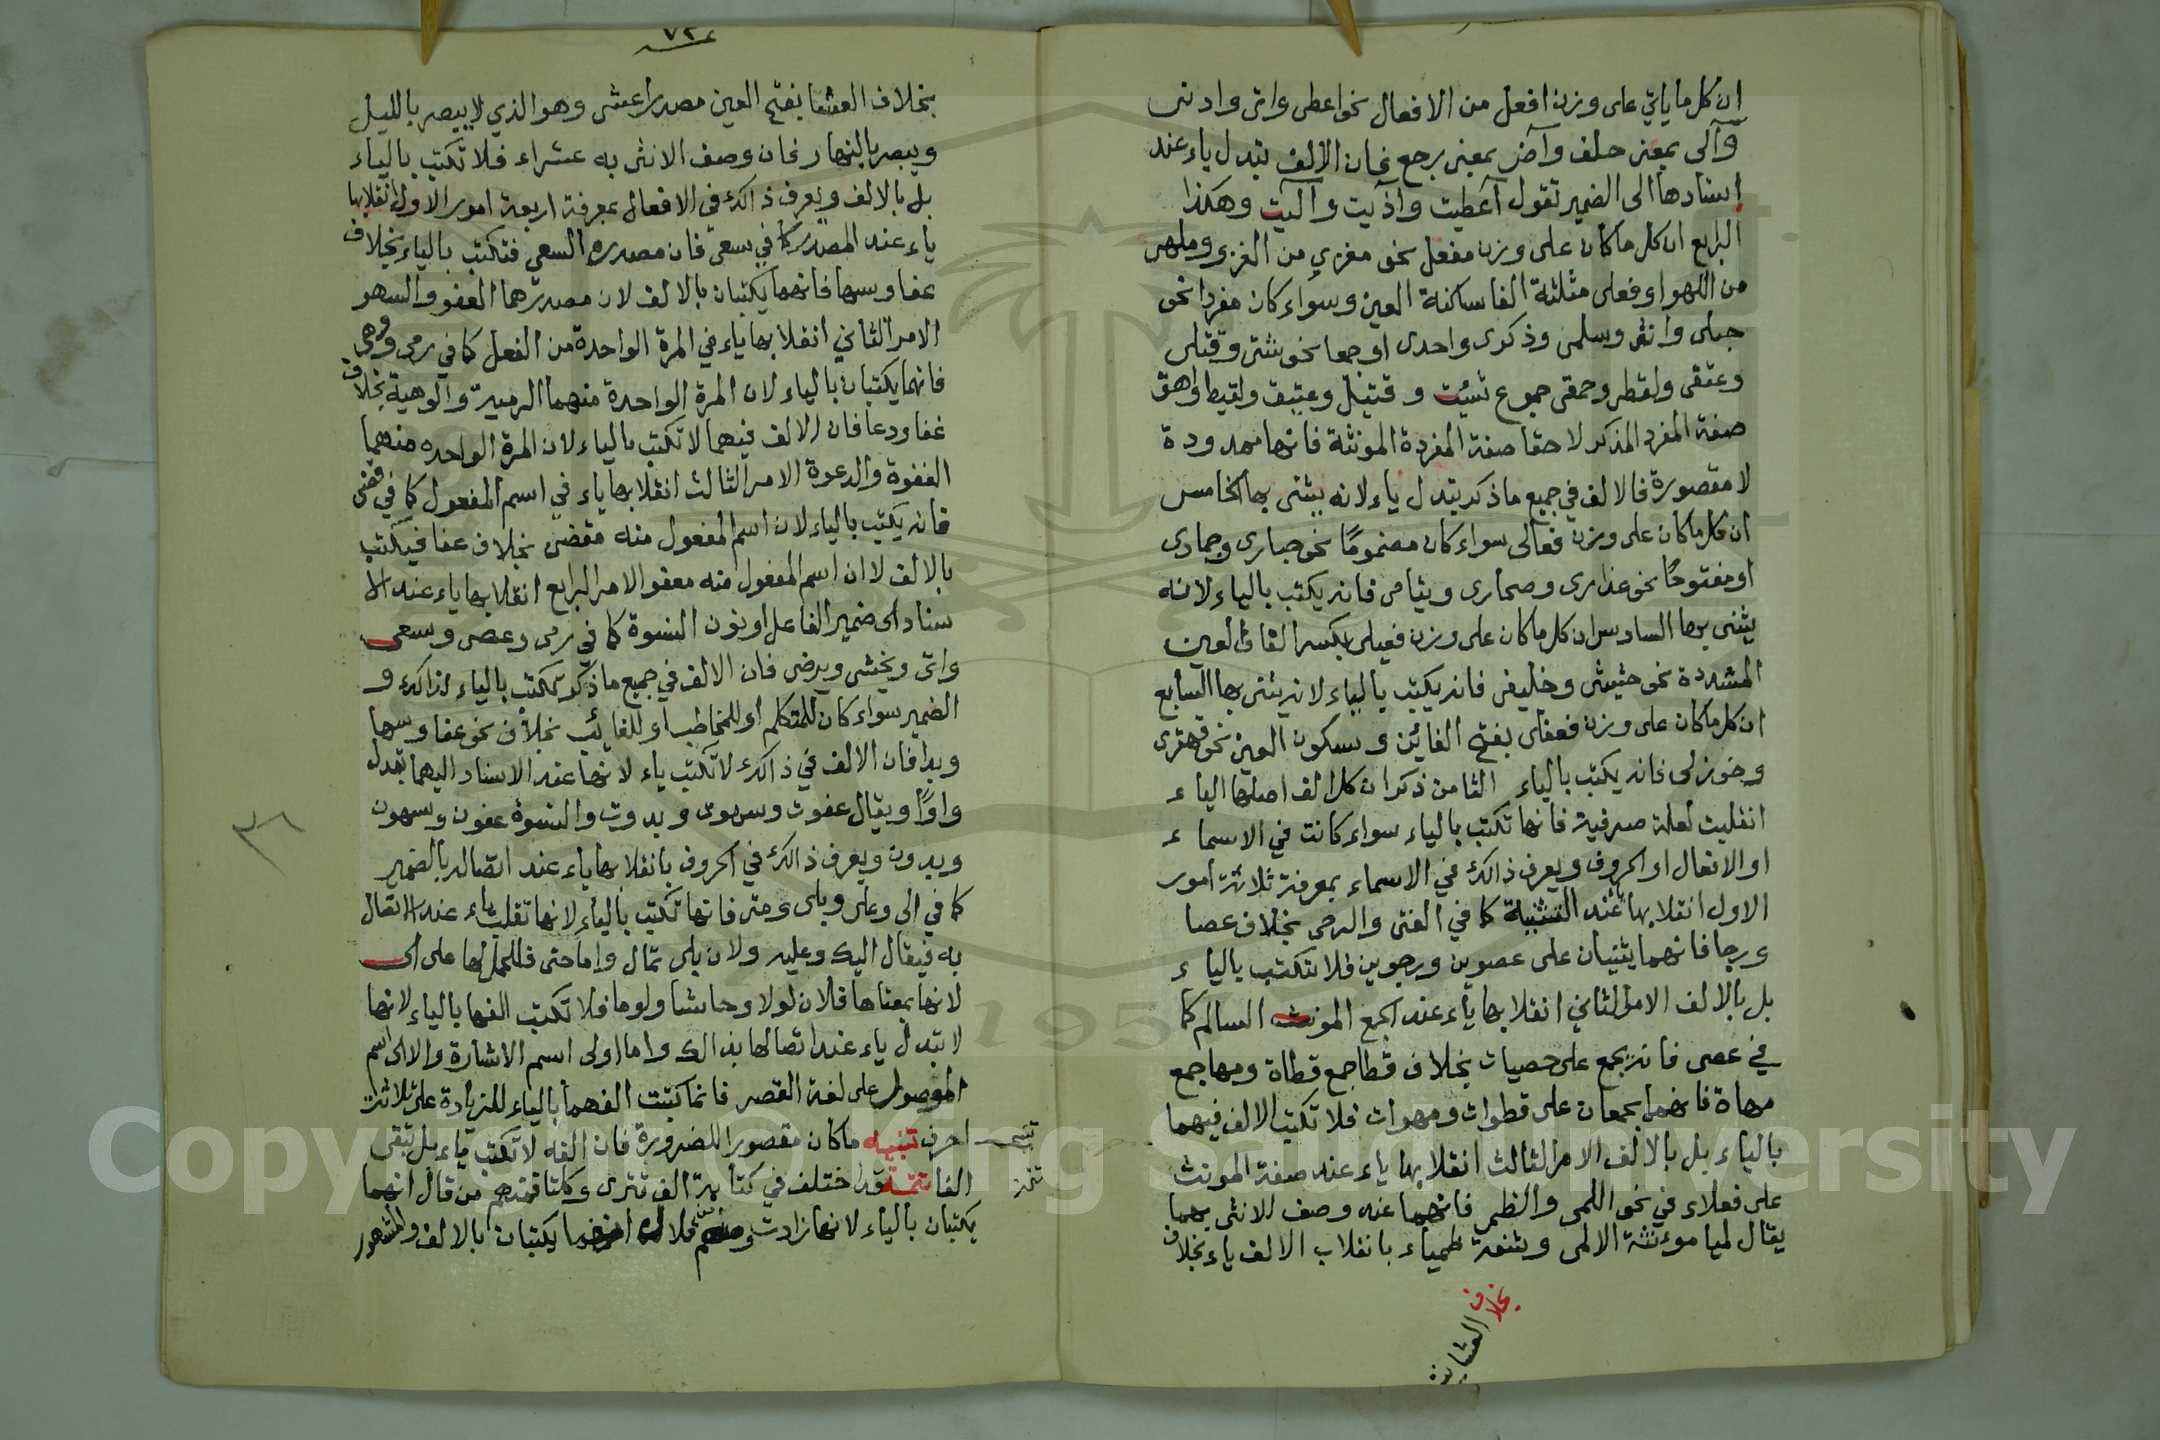 ان كل ما ياتي على وزن افعل من الافعال نحو اعطى واتى وادنى
وآلى بمعنى حلف وآض بمعنى رجع فان الالف يتدل ياء عند
اسنادها الى الضمير تقول آعطيت وآذيت وآليت وهكذا
الرابع ان كل ما كان على وزن مفعل نحو مغزي من الغزو وملهى
من اللهو او فعلى مثلثة الفا ساكنة العين وسواء كان مفردا نحو
حبلى وانثى وسلمى وذكرى واحدى او جمعا نحو شتى وقتلى
وعتقى ولقطى وحمقى جموع شتيت و قتيل وعتيق ولقيط واحمق
صفة المفرد المذكر لا حقا صفة المفردة المونثة فانها ممدودة
لا مقصورة فالالف في جميع ما ذكر يتدل ياء لانه يثنى بها الخامس
ان كل ما كان على وزن فعالى سواء كان مضمومًا نحو حبارى وجمادى
او مفتوحًا نحو عذارى وصحارى ويتامى فانه يكتب بالياء لانه
يثنى بها السادس ان كل ما كان على وزن فعيلى بكسر الفا والعين
المشددة نحو حثيثى وخليفى فانه يكتب بالياء لانه يثنى بها السابع
ان كل ما كان على وزن فعفلى بفتح الفائين وسكون العين نحو قهقرى
وخوزلى فانه يكتب بالياء الثامن ذكر ان كل الف اصلها الياء
انقلبت لعلة صرفية فانها تكتب بالياء سواء كانت في الاسماء
او الافعال او الحروف ويعرف ذالك في الاسماء بمعرفة ثلاثة أمور
الاول انقلابها عند التثنية كما في الفتى والرحى بخلاف عصا
ورجا فانهما يثنيان على عصوين ورجوين فلا تكتب بالياء
بل بالالف الامر الثاني انقلابها ياء عند الجمع المونث السالم كما
في عصى فانه يجمع على حصيات بخلاف قطا جمع قطاة ومها جمع
مهاة فانهما يجمعان على قطوات ومهوات فلا تكتب الالف فيهما
بالياء بل بالالف الامر الثالث انقلابها ياء عند صفة المونث
على فعلاء في نحو اللمى والظمى فانهما عند وصف الانثى بهما
يقال لميا موءنثة الالمى وشفة ظمياء بانقلاب الالف ياء بخلاف
بخلاف العشا بفتح
٧٢
بخلاف العشا بفتح العين مصدر اعشى وهو الذي لا يبصر بالليل
ويبصر بالنهار فان وصف الانثى به عشراء فلا تكتب بالياء
بل بالالف ويعرف ذالك في الافعال بمعرفة اربعة امور الاول انقلابها
ياء عند المصدر كما في سعى فان مصدره السعي فتكتب بالياء بخلاف
عفا وسها فانهما يكتبان بالالف لان مصدرهما العفو والسهو
الامر الثاني انقلابها ياء في المرة الواحدة من الفعل كما في رمى ووهى
فانهما يكتبان بالياء لان المرة الواحدة منهما الرمية والوهية بخلاف
غفا ودعا فان الالف فيهما لا تكتب بالياء لان المرة الواحده منهما
الغفوة والدعوة الامر الثالث انقلابها ياء في اسم المفعول كما في قضى
فانه يكتب بالياء لان اسم المفعول منه مقضى بخلاف عفا فيكتب
بالالف لا ان اسم المفعول منه معفو الامر الرابع انقلابها ياء عند الا
سناد الى ضمير الفاعل او نون النسوة كما في رمى وعصى وسعى
واتى ويخشى ويرضى فان الالف في جميع ما ذكر تكتب بالياء لذالك و
الضمير سواء كان للمتكلم او للمخاطب او للغائب بخلاف نحو عفا وسها
وبدا فان الالف في ذالك لا تكتب ياء لانها عند الاسناد اليهما تبدل
واوًا ويقال عفوت وسهوت وبدوت والنسوة عفون وسهون
وبدون ويعرف ذالك في الحروف بانقلابها ياء عند اتصاله بالضمير
كما في الى وعلى وبلى وحتى فانها تكتب بالياء لانها تقلب ياء عند الاتصال
به فيقال اليك وعليه ولان بلى تمال واما حتى فللحملها على الى
لانها بمعناها فلان لولا وحاشا ولوما فلا تكتب الفها بالياء لانها
لا تبدل ياء عند اتصالها بذالك واما اولى اسم الاشارة والالى اسم
الموصول على لغة القصر فانما كتبت الفهما بالياء للزيادة على ثلاثة
احرف تنبيه ما كان مقصورا للضرورة فان الفه لا تكتب ياء بل تبقى
الفا تتمة قد اختلف في كتابة الف تترى وكلتا فمنهم من قال انهما
يكتبان بالياء لانها زادت ومنهم يكتبان بالالف والمشهور
٣٦
Copyright © King Saud University
195